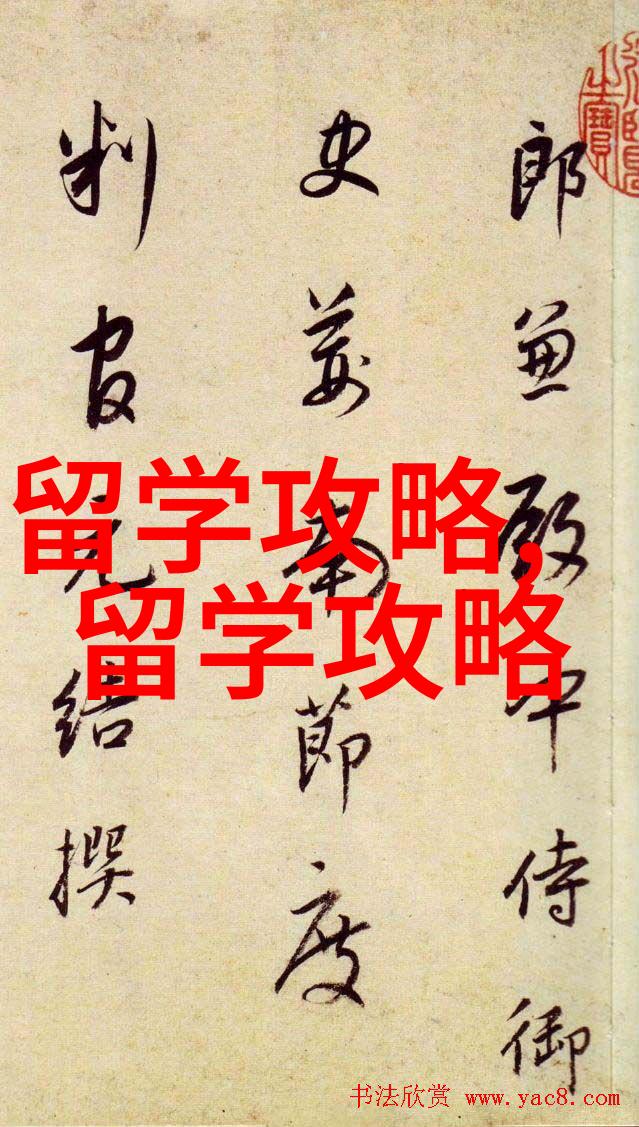 郎兼殿中侍御
史荊南節度
判官元結撰
留学攻略,
留学攻略
书法欣赏 www.yac8.com